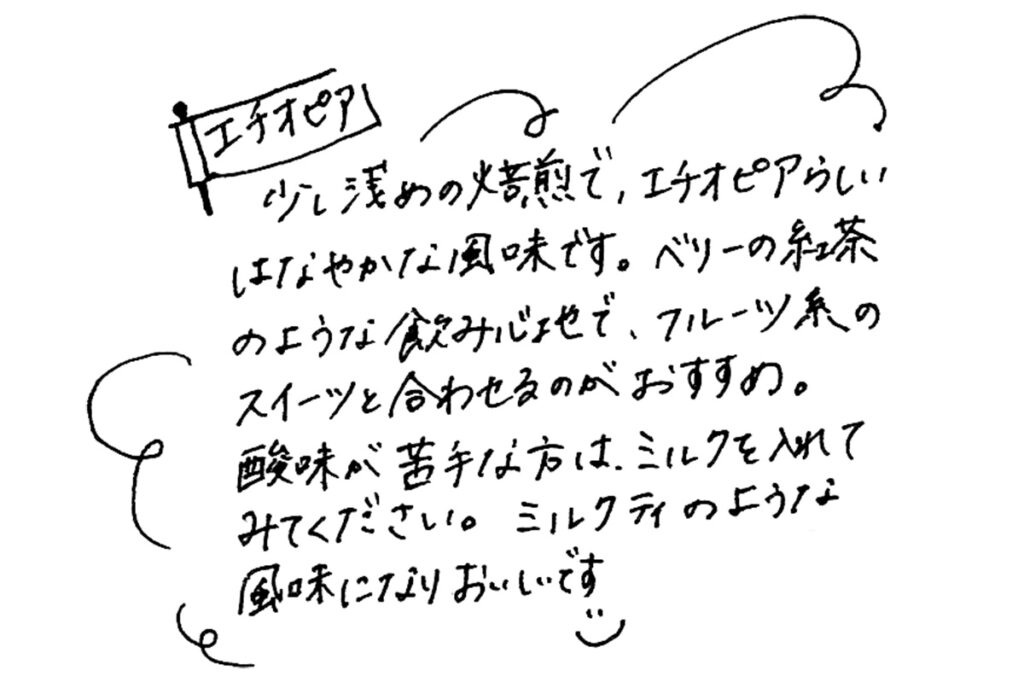 エチオピア
少し浅めの焙煎で、エチオピアらしい
はなやかな風味です。ベリーの紅茶
のような飲み心地で、フルーツ系の
スイーツと合わせるのがおすすめ。
酸味が苦手な方は、ミルクを入れて
みてください。ミルクティのような
風味になりおいしいです